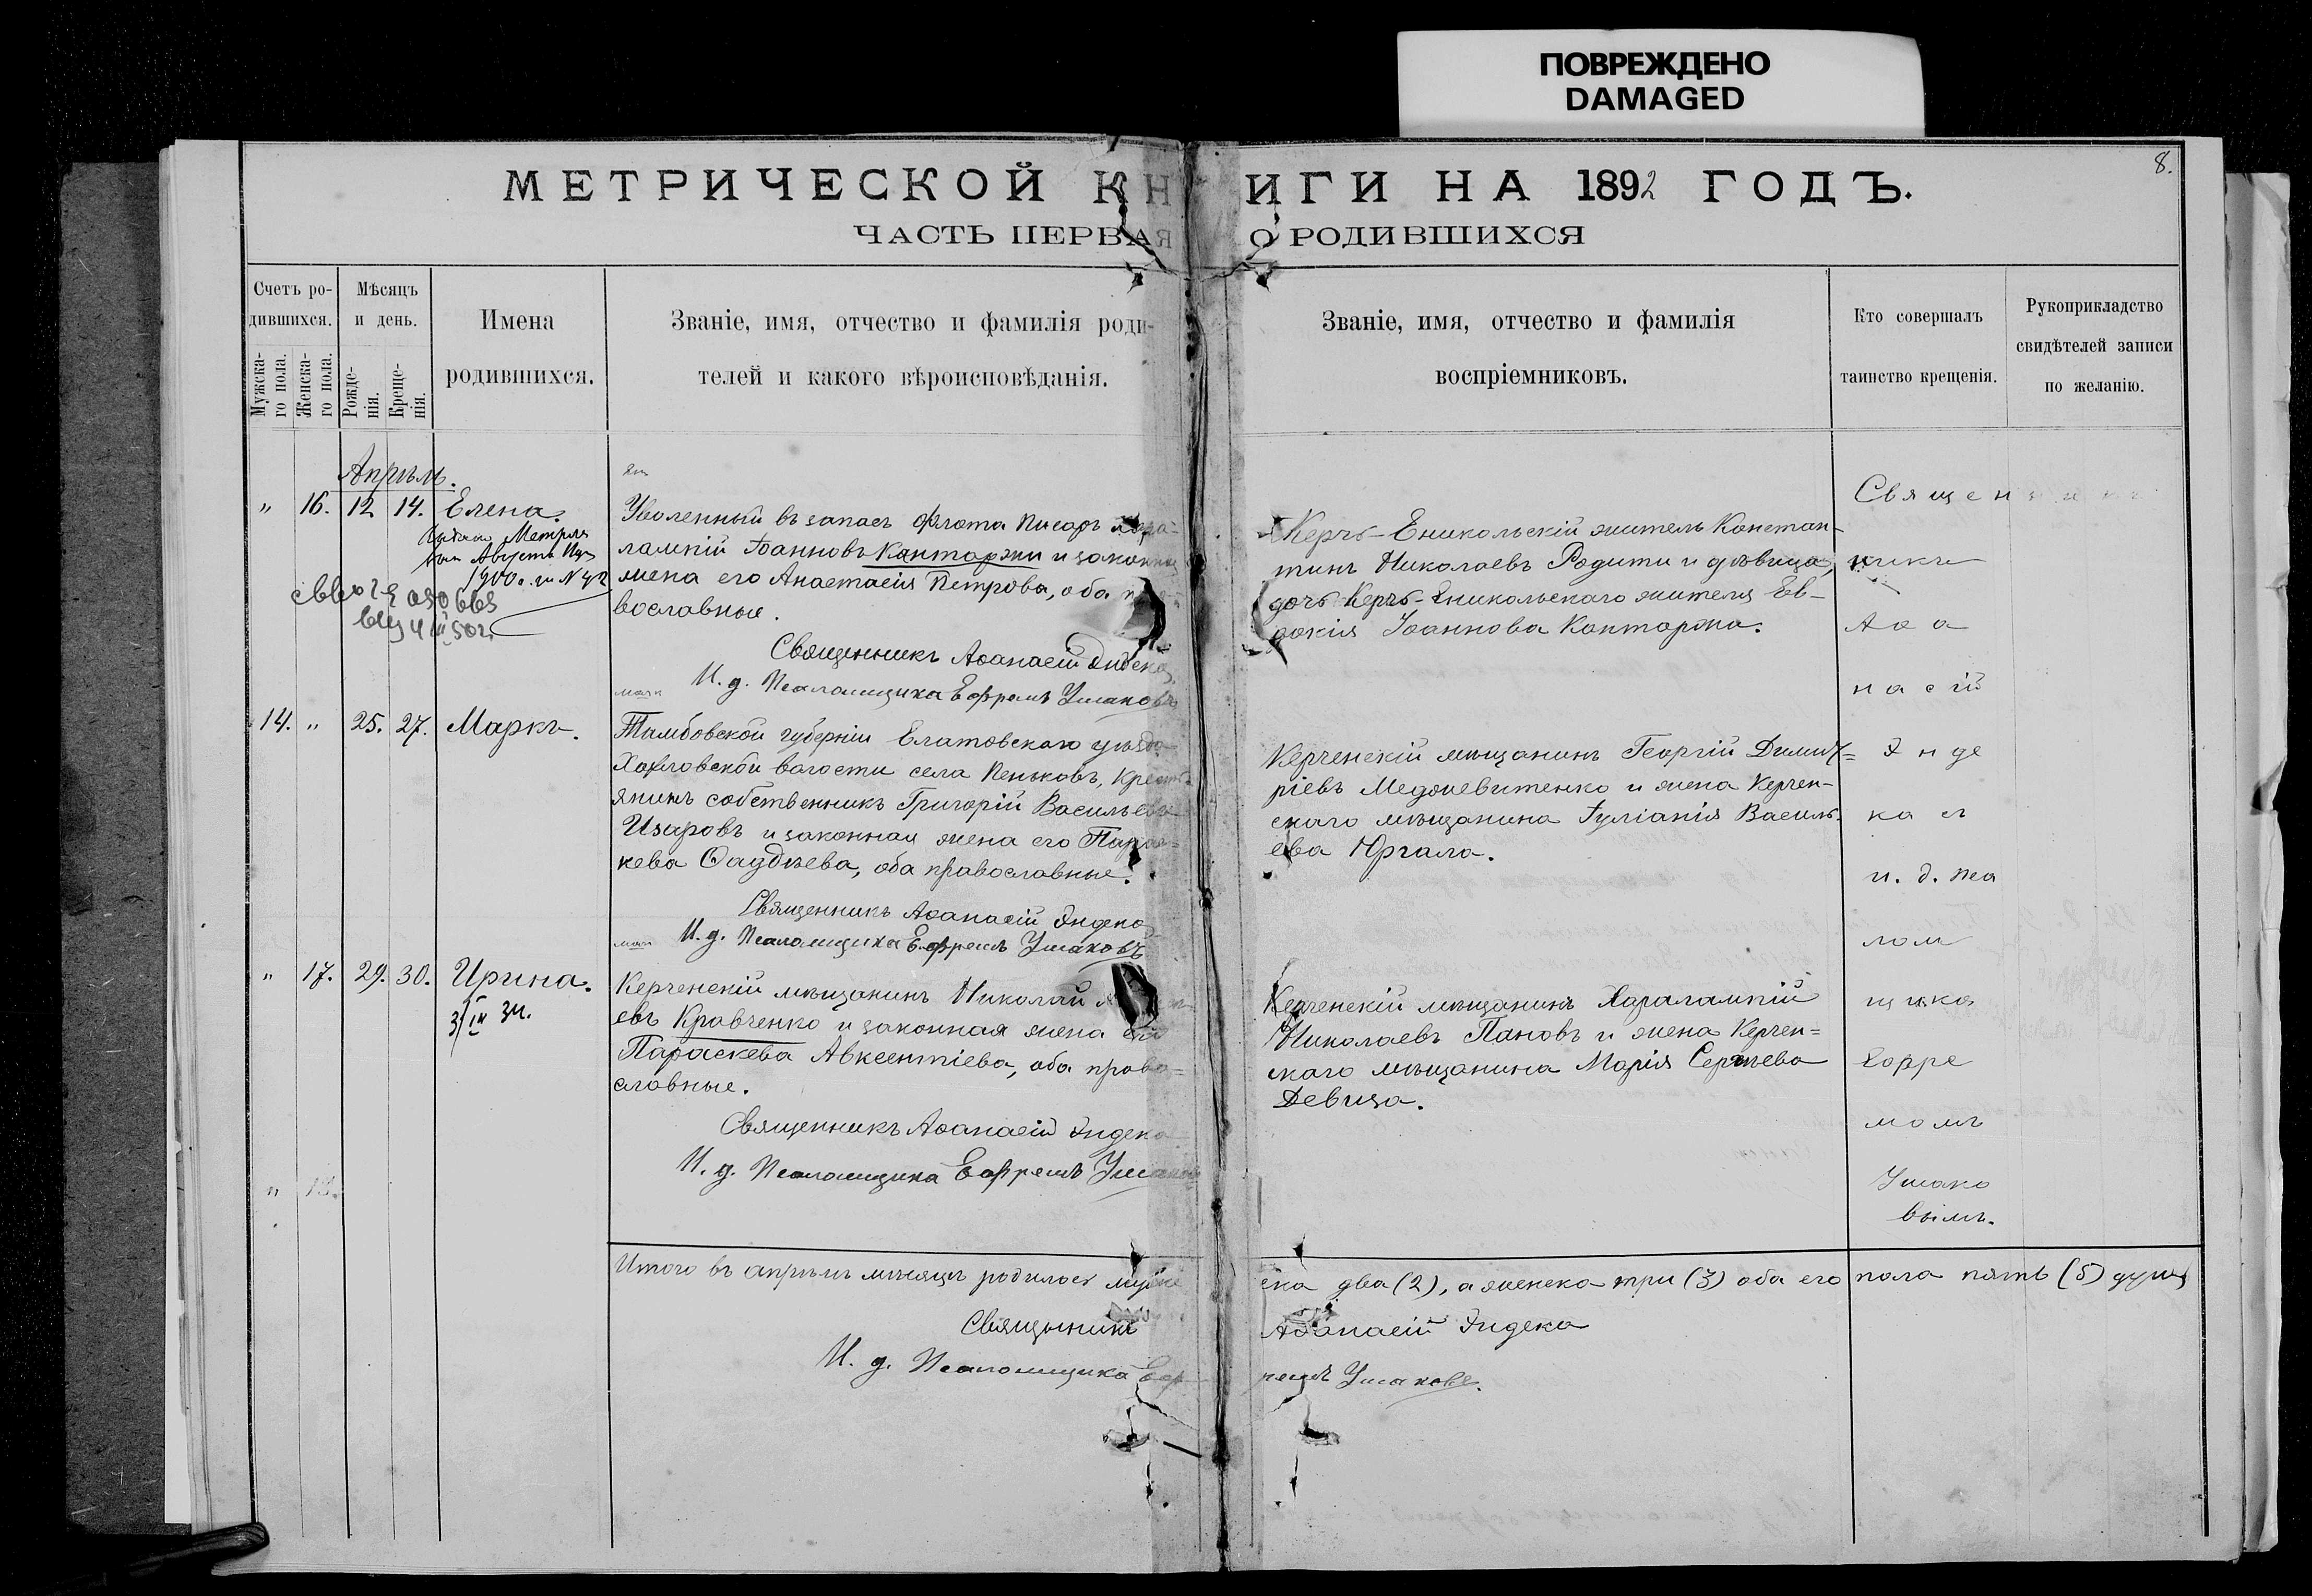 ПОВРЕЖДЕНО
DAMAGED
8.
МЕТРИЧЕСКОЙ КНИГИ НА 1892 ГОДЪ.
ЧАСТЬ ПЕРВАЯ О РОДИВШИХСЯ
Счетъ ро-
дившихся.
Мужска-
го пола.
Женска-
го пола.
Мѣсяцъ
и день.
Рожде-
нія.
Креще-
нія.
Имена
родившихся.
Званіе, имя, отчество и фамилія роди-
телей и какого вѣроисповѣданія.
Званіе, имя, отчество и фамилія
воспріемниковъ.
Кто совершалъ
таинство крещенія.
Рукоприкладство
свидѣтелей записи
по желанію.
Апрѣль.
" 16. 12. 14. Елена.
1900 г. за №
Уволенный въ запасъ флота писарь
лампій Іоанновъ Кантаржи и законная
жена его Анастасія Петрова, оба пра-
вославные.
Священникъ Аѳанасій Индека
И. д. Псаломщика Ефремъ Ушаковъ
Керчь-Еникольскій житель Констан-
тинъ Николаевъ Родити и дѣвица,
дочь Керчь-Еникольскаго жителя Ев-
докія Іоаннова Кантаржа.
14. " 25. 27. Маркъ.
Тамбовской губерніи Елатовскаго уѣзда
волости села Пеньковъ, крестъ-
янинъ собственникъ Григорій Васильевъ
Изаровъ и законная жена его Парас-
кева Фаддѣева, оба православные.
Священникъ Аѳанасій Индека
И. д. Псаломщика Ефремъ Ушаковъ
Керченскій мѣщанинъ Георгій Димит=
ріевъ Медяевитенко и жена Керчен-
скаго мѣщанина Іуліанія Василь-
ева Юргала.
" 17. 29. 30. Ирина.
Керченскій мѣщанинъ Николай
евъ Кравченко и законная жена его
Параскева Авксентіева, оба право=
славные.
Священникъ Аѳанасій Индека
И. д. Псаломщика Ефремъ Ушаковъ
Керченскій мѣщанинъ Харалампій
Николаевъ Пановъ и жена Керчен=
скаго мѣщанина Марія Сергѣева
Девиза.
Священ
никъ
Аѳа
насій
Инде
ка съ
и. д. пса
лом
щика
Ефре
момъ
Ушако
вымъ.
" 18.
Итого въ апрѣлѣ мѣсяцѣ родилось мужеска два (2), а женска три (3) оба его пола пять (5) душъ
Священникъ Аѳанасій Индека
И. д. Псаломщика Ефремъ Ушаковъ.